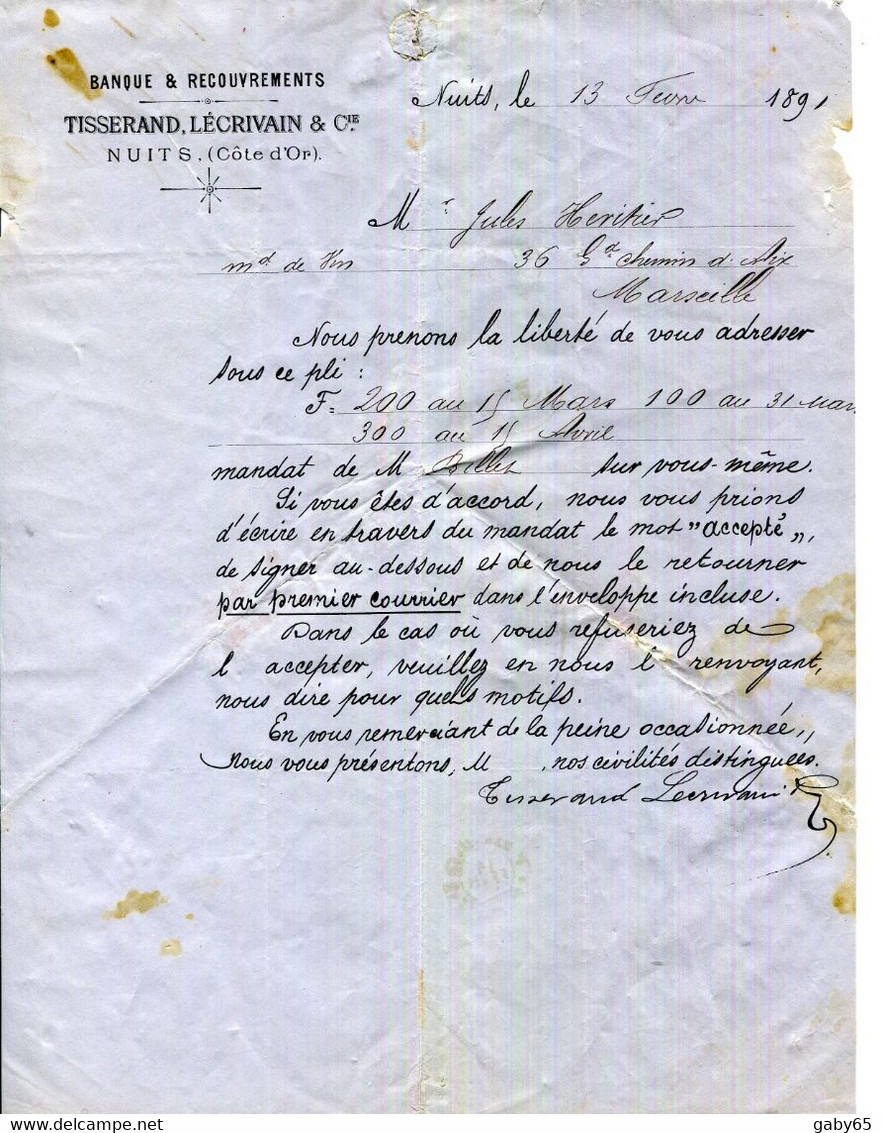 BANQUE & RECOUVREMENTS
TISSERAND, LÉCRIVAIN & CIE
NUITS, (Côte d'Or).
Nuits, le 13 Fevr 1891
Mr Jules Heritier
md de Vin 36 Gd chemin d'Aix
Marseille
Nous prenons la liberté de vous adresser
sous ce pli :
F= 200 au 15 Mars 100 au 31 Mars
300 au 15 Avril
mandat de M sur vous-même.
Si vous êtes d'accord, nous vous prions
d'écrire en travers du mandat le mot "accepté",
de signer au-dessous et de nous le retourner
par premier courrier dans l'enveloppe incluse.
Dans le cas où vous refuseriez de
l accepter, veuillez en nous l renvoyant,
nous dire pour quels motifs.
En vous remerciant de la peine occasionnée,,
Nous vous présentons, M , nos civilités distinguées.
Tisserand Lecrivain
delcampe.net
gaby65